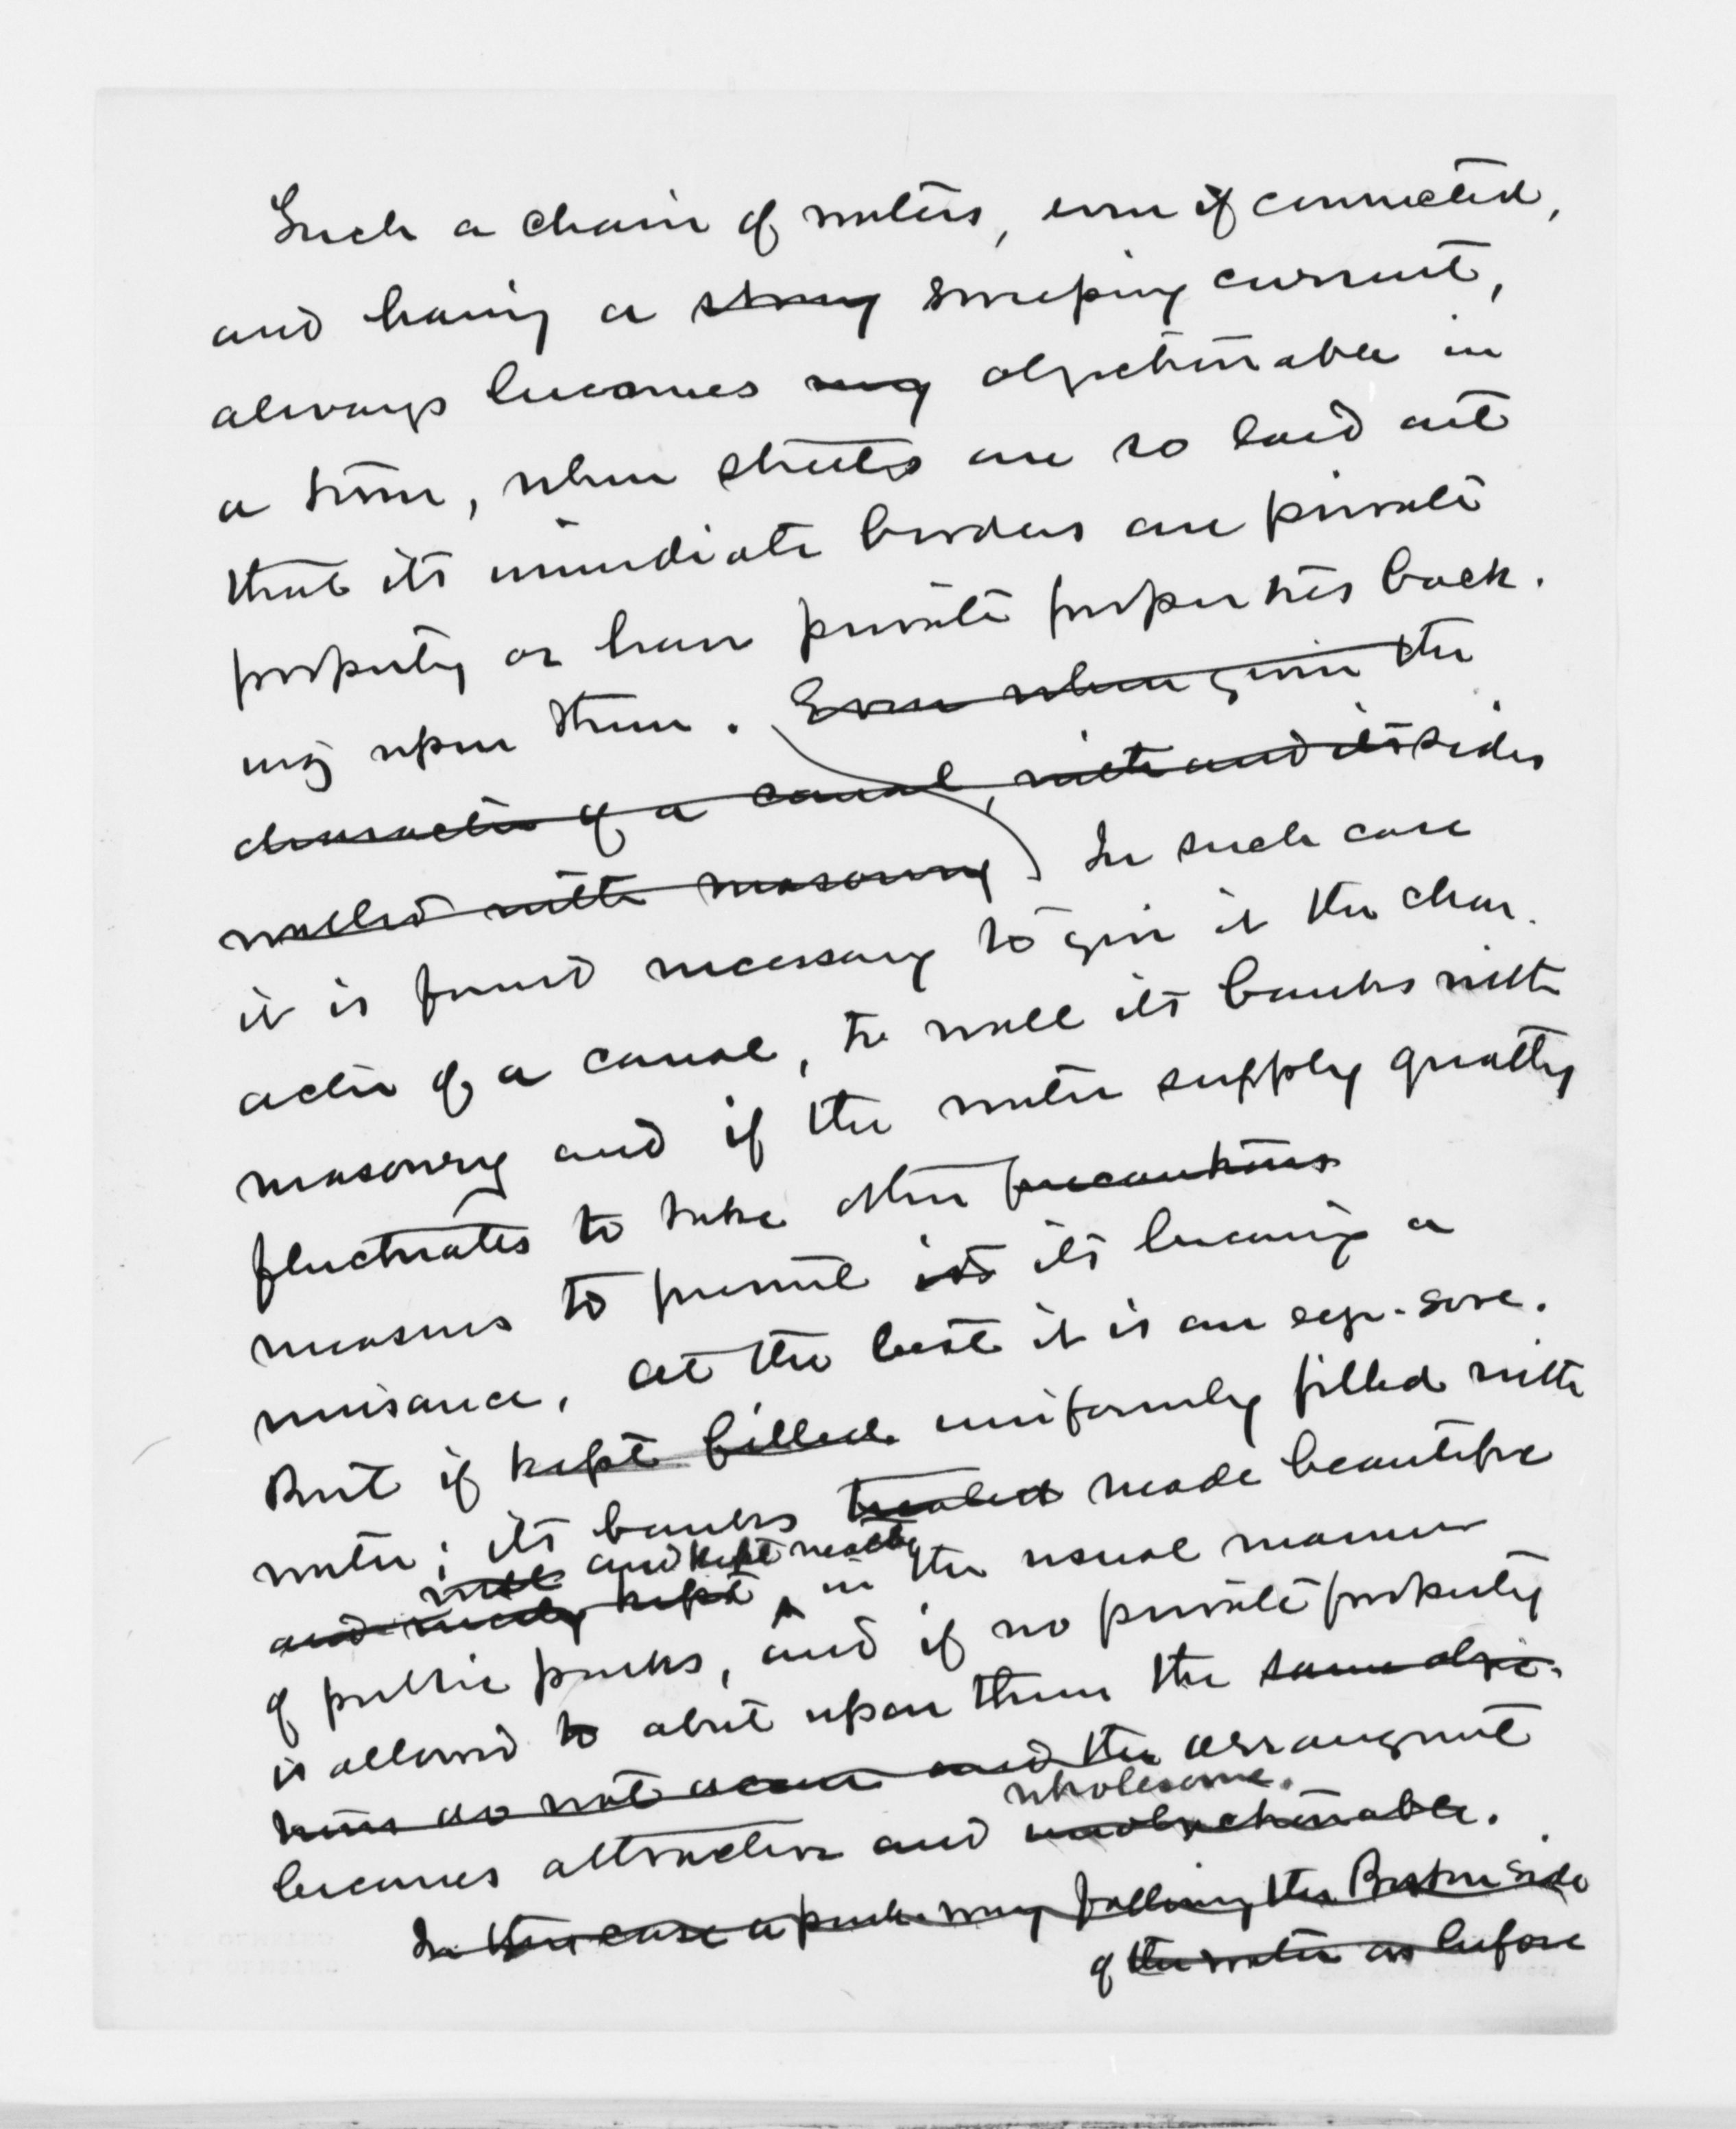 Such a chain of waters, even if connected,
and having a strong sweeping current,
always becomes very objectionable in
a town, when streets are so laid out
that its immediate borders are private
property or have private properties back.
ing upon them. Even when given the
character of a canal, with and its sides
walled with masonry In such case
it is found necessary to give it the char.
acter of a canal, to wall its banks with
masonry and if the water supply greatly
fluctuates to take other precautions
measures to prevent its its becoming a
nuisance, at the best it is an eye-sore.
But if kept filled uniformly filled with
water; its banks treated made beautiful
well and kept neatly
and nicely kept in the usual manner
of public parks, and if no private property
is allowed to abut upon them the same objec-
tions do not occur and the arrangement
wholesome.
becomes attractive and unobjectionable.
In this case a park-way following the Boston side
of the water as before